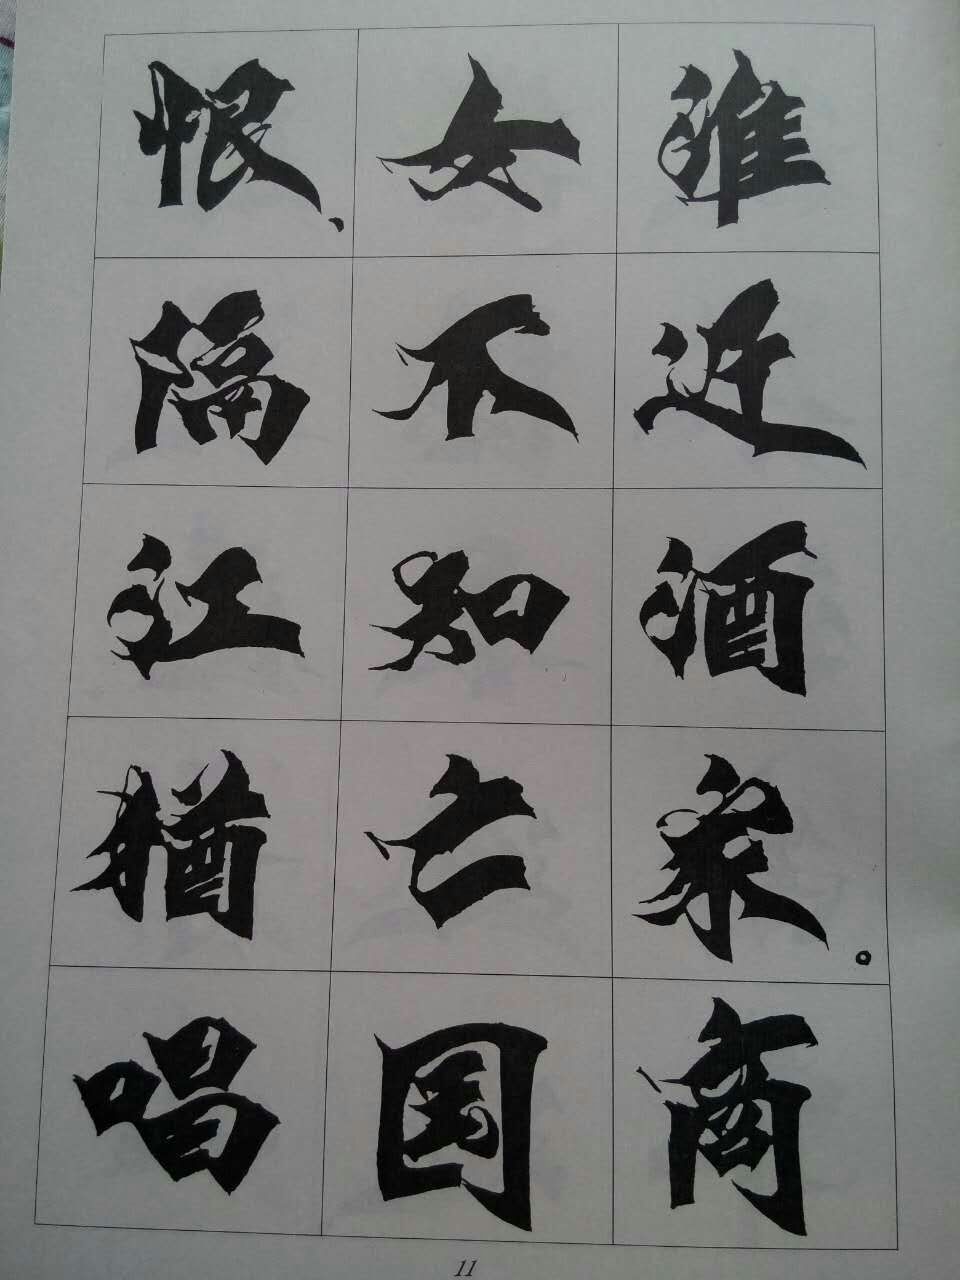 淮近酒家。商
女不知亡国
恨、隔江犹唱
11